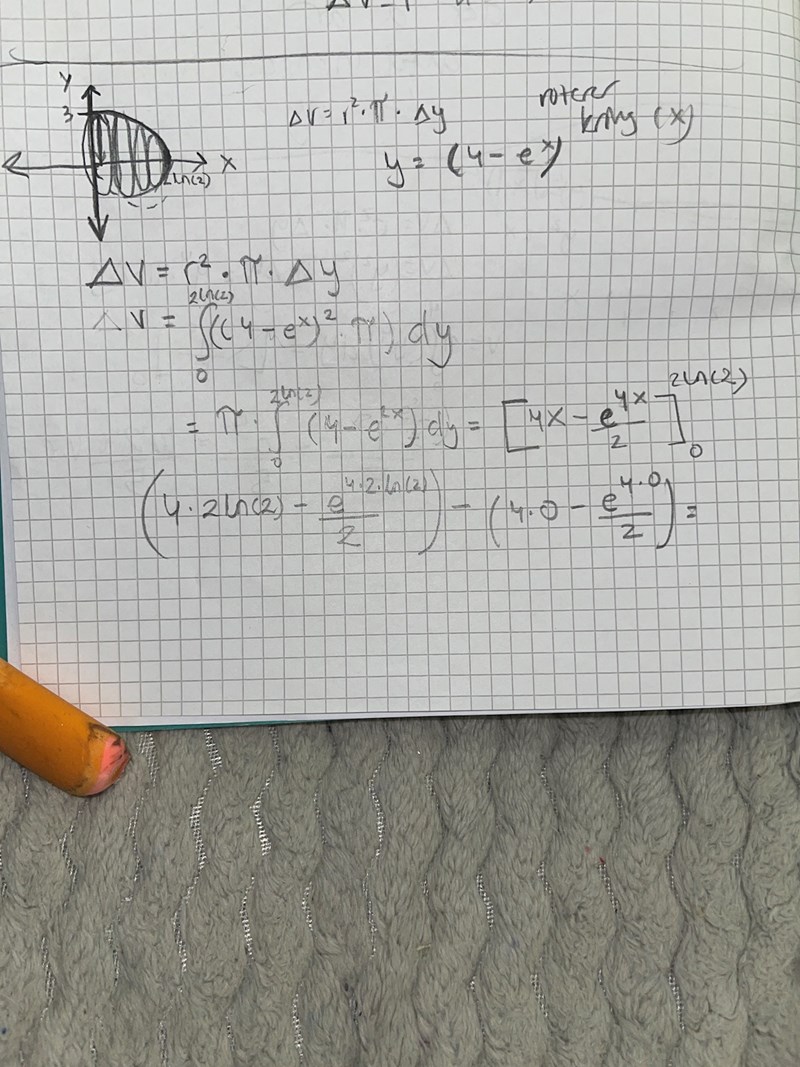 y
3
x
2ln(2)
ΔV = r²·π·Δy
roterer
kring (x)
y = (4 - eˣ)
ΔV = r²·π·Δy
ΔV = ∫₀^{2ln(2)} ((4 - eˣ)²·π) dy
= π·∫₀^{2ln(2)} (4 - e^{2x}) dy = [4x - e^{4x}/2]₀^{2ln(2)}
(4·2ln(2) - e^{4·2·ln(2)}/2) - (4·0 - e^{4·0}/2) =